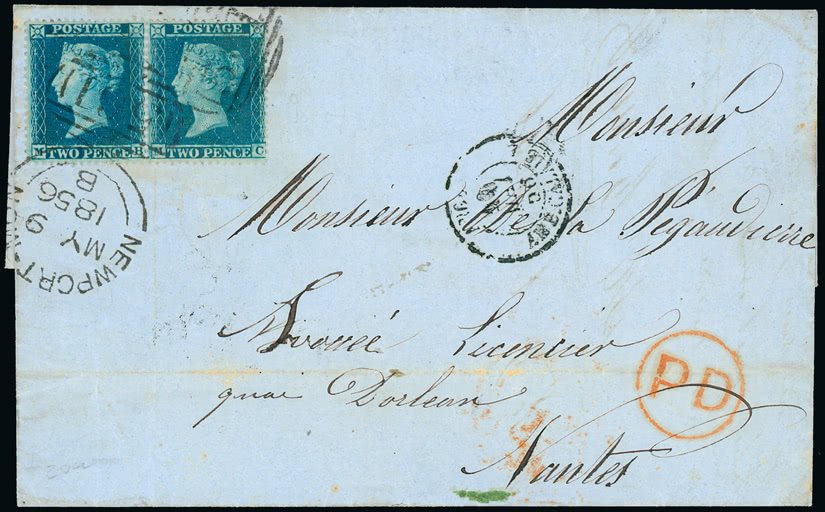 POSTAGE POSTAGE
M TWO PENCE B M TWO PENCE C
NEWPORT
MY 9
1856
B
Monsieur
Monsieur De la Pégaudierre
Avoué Licencier
quai Dorlean
Nantes
PD